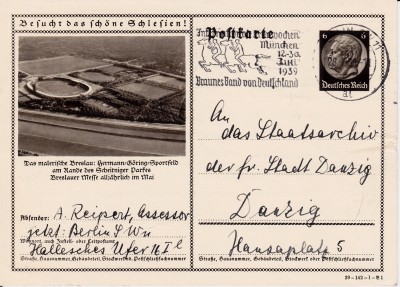 Besucht das schöne Schlesien!
Postkarte
wochen
München
12-30.
Juli
1939
Braunes Band von Deutschland
6 6
Deutsches Reich
Das malerische Breslau: Hermann-Göring-Sportfeld
am Rande des Scheitniger Parkes
Breslauer Messe alljährlich im Mai
Absender: A. Reipert, Assessor
jetzt: Berlin SW 11
Wohnort, auch Zustell- oder Leitpostamt
Hallesches Ufer 16 I l
Straße, Hausnummer, Gebäudeteil, Stockwerk od. Postschließfachnummer
An
das Staatsarchiv
der fr. Stadt Danzig
Danzig
Hansaplatz 5
Straße, Hausnummer, Gebäudeteil, Stockwerk od. Postschließfachnummer